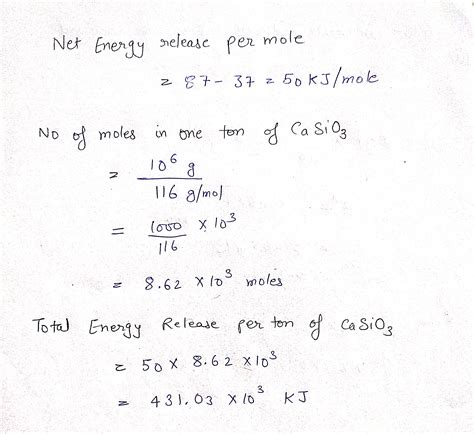 Net Energy release per mole
= 87 - 37 = 50 KJ/mole
No of moles in one ton of CaSiO3
= 10^6 g / 116 g/mol
= 1000 / 116 × 10^3
= 8.62 × 10^3 moles
Total Energy Release per ton of CaSiO3
= 50 × 8.62 × 10^3
= 431.03 × 10^3 KJ